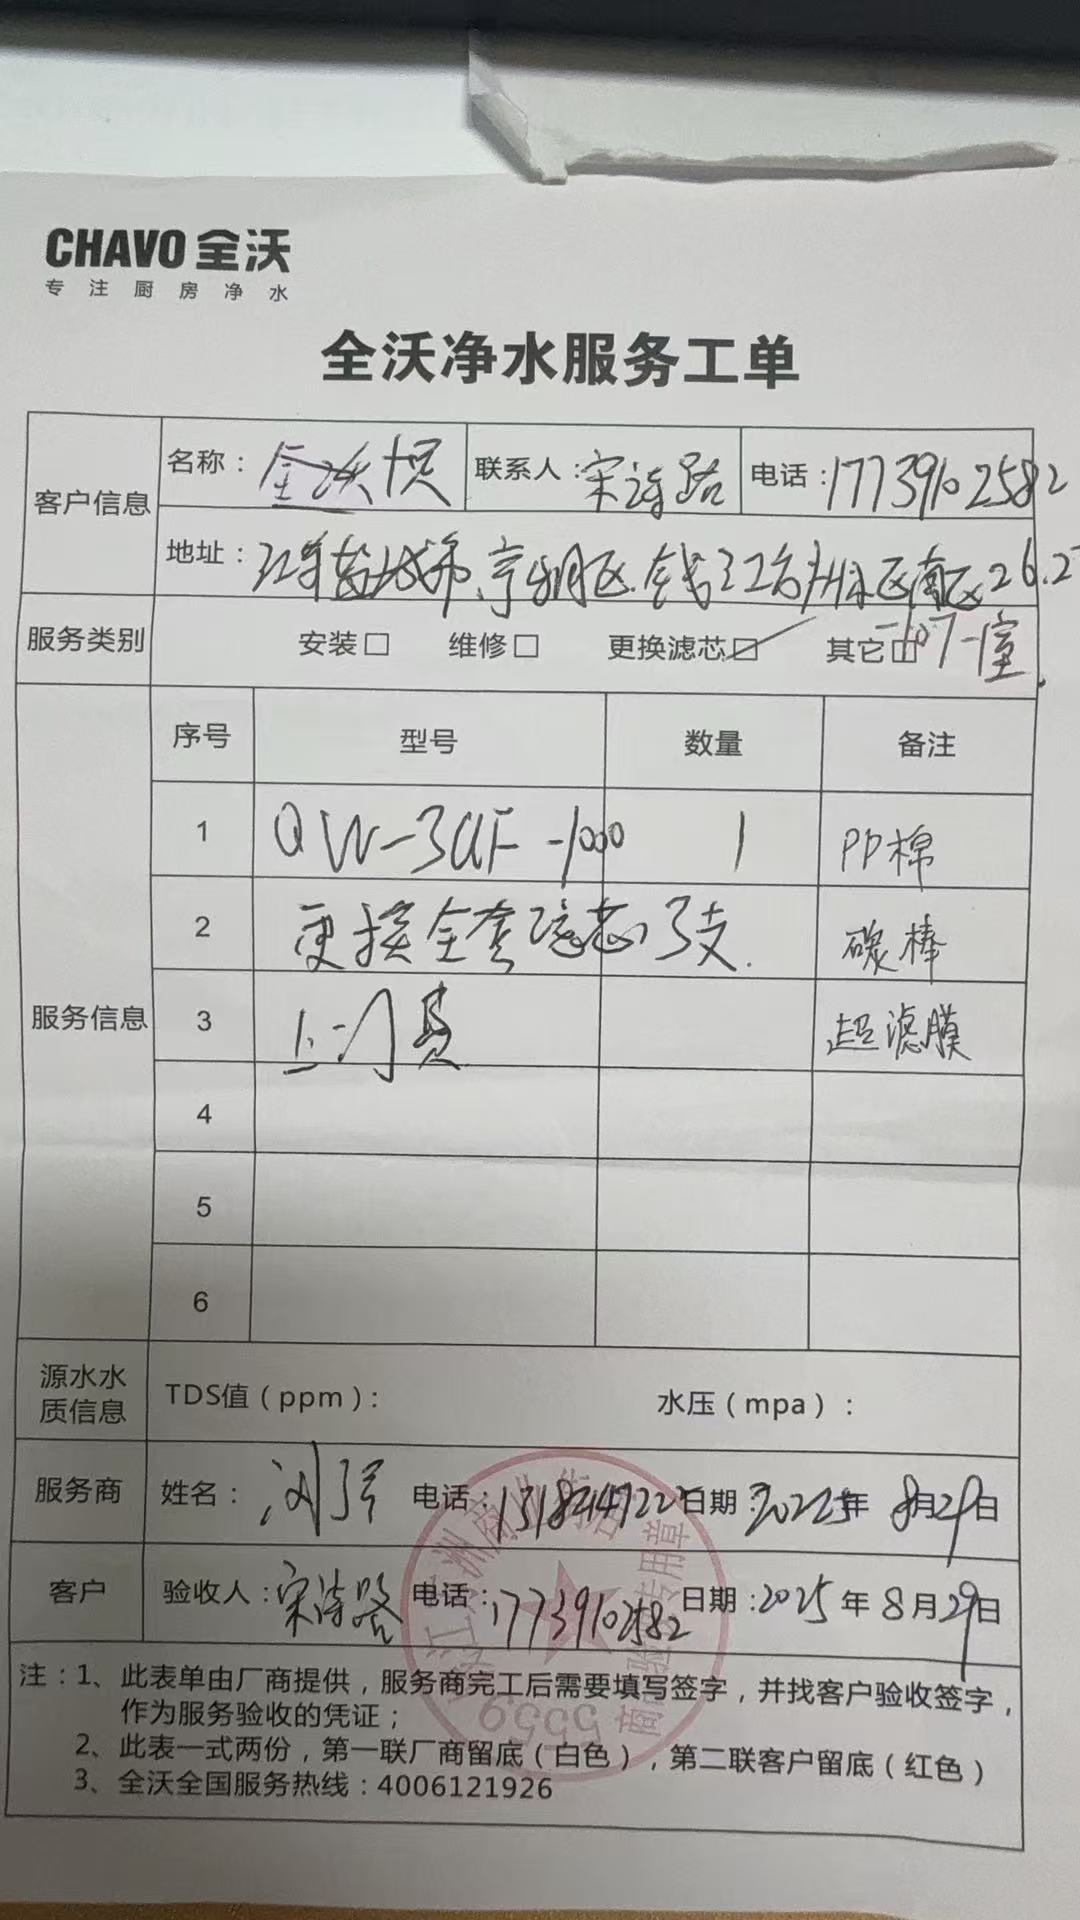 CHAVO 全沃
专注厨房净水
全沃净水服务工单
客户信息
名称：
联系人：宋诗路
电话：17739102582
地址：江苏盐城市亭湖区 区南区26.2
服务类别
安装□ 维修□ 更换滤芯☑ 其它□ -107-1室
服务信息
序号 型号 数量 备注
1 QW-3UF-1000 1 PP棉
2 更换全套滤芯3支. 碳棒
3 上门费 超滤膜
4
5
6
源水水质信息
TDS值（ppm）： 水压（mpa）：
服务商 姓名：刘洋 电话： 日期：2025年 8月29日
客户 验收人：宋诗路 电话：17739102582 日期：2025年8月29日
注：1、此表单由厂商提供，服务商完工后需要填写签字，并找客户验收签字，
作为服务验收的凭证；
2、此表一式两份，第一联厂商留底（白色），第二联客户留底（红色）
3、全沃全国服务热线：4006121926
5559